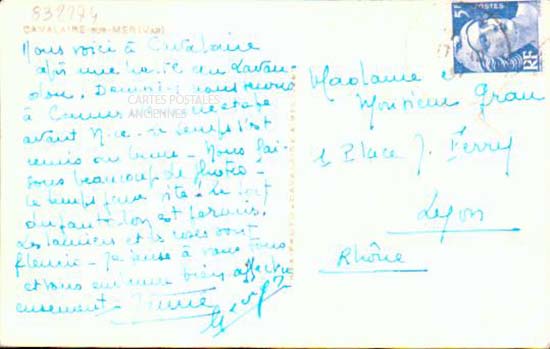 832274
CAVALAIRE-SUR-MER (VAR)
Nous voici à Cavalaire
après une halte au Lavan-
dou. Demain nous irons
à Cannes étape
avant Nice. le temps s'est
remis au beau - Nous fai-
sons beaucoup de photos -
le temps passe vite. Le port
du pantalon est permis.
Les lauriers et les roses sont
fleuris - Je pense à vous tous
et vous embrasse bien affectu
eusement
CARTES POSTALES
ANCIENNES
5F POSTES
RF
Madame et
Monsieur Grau
1 Place J. Ferry
Lyon
Rhône